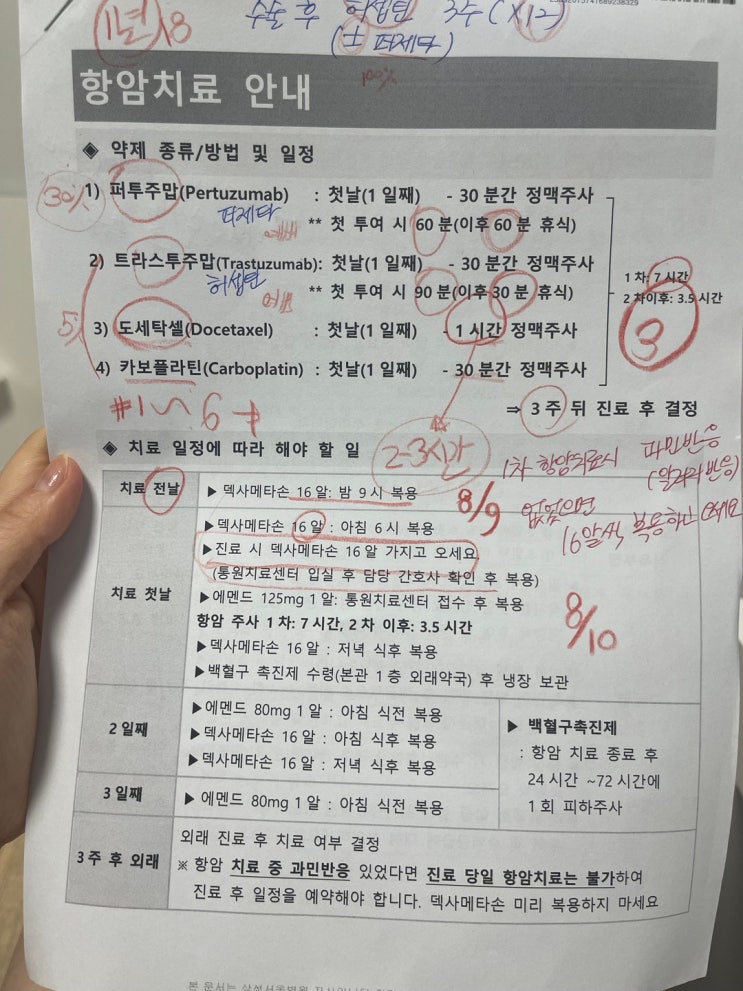 1년 18
수술 후 허셉틴 3주 (×12)
(± 퍼제타)
100%
항암치료 안내
◈ 약제 종류/방법 및 일정
30%
1) 퍼투주맙(Pertuzumab) : 첫날(1 일째) - 30 분간 정맥주사
퍼제타
** 첫 투여 시 60 분(이후 60 분 휴식)
2) 트라스투주맙(Trastuzumab): 첫날(1 일째) - 30 분간 정맥주사
허셉틴
** 첫 투여 시 90 분(이후 30 분 휴식)
1 차: 7 시간
2 차이후: 3.5 시간
3
5%
3) 도세탁셀(Docetaxel) : 첫날(1 일째) - 1 시간 정맥주사
4) 카보플라틴(Carboplatin) : 첫날(1 일째) - 30 분간 정맥주사
⇒ 3 주 뒤 진료 후 결정
#1~6
2-3시간
◈ 치료 일정에 따라 해야 할 일
1차 항암치료시 과민반응
(알러지반응)
없었으면
16알씩 복용하고 오세요
치료 전날
▶ 덱사메타손 16 알: 밤 9 시 복용
8/9
치료 첫날
▶덱사메타손 16 알 : 아침 6 시 복용
▶진료 시 덱사메타손 16 알 가지고 오세요.
(통원치료센터 입실 후 담당 간호사 확인 후 복용)
▶에멘드 125mg 1 알: 통원치료센터 접수 후 복용
항암 주사 1 차: 7 시간, 2 차 이후: 3.5 시간
8/10
▶덱사메타손 16 알 : 저녁 식후 복용
▶백혈구 촉진제 수령(본관 1 층 외래약국) 후 냉장 보관
2 일째
▶에멘드 80mg 1 알 : 아침 식전 복용
▶덱사메타손 16 알 : 아침 식후 복용
▶덱사메타손 16 알 : 저녁 식후 복용
▶ 백혈구촉진제
: 항암 치료 종료 후
24 시간 ~72 시간에
1 회 피하주사
3 일째
▶ 에멘드 80mg 1 알 : 아침 식전 복용
3 주 후 외래
외래 진료 후 치료 여부 결정
※ 항암 치료 중 과민반응 있었다면 진료 당일 항암치료는 불가하여
진료 후 일정을 예약해야 합니다. 덱사메타손 미리 복용하지 마세요
본 문서는 삼성서울병원